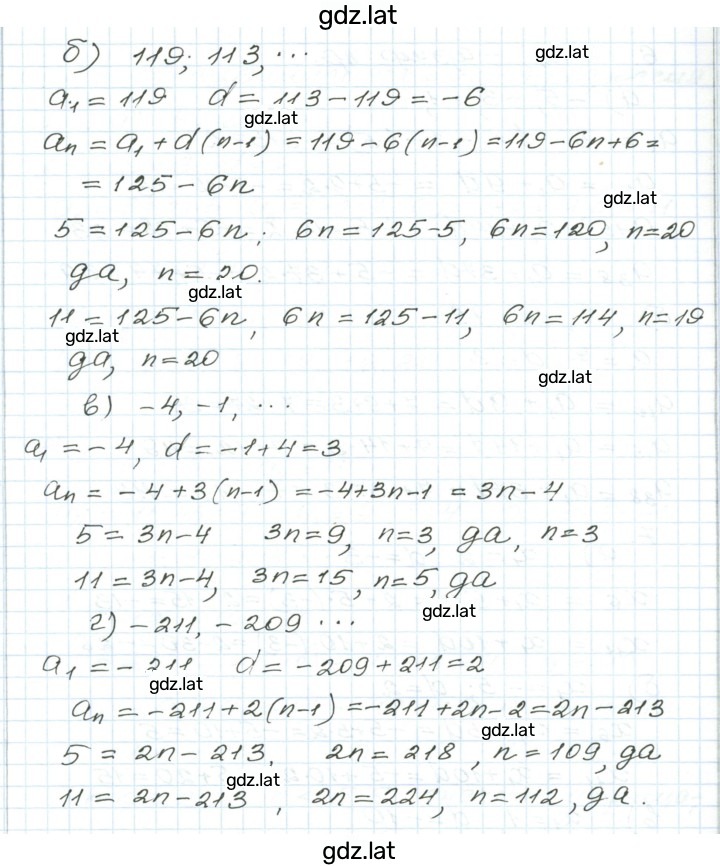 gdz.lat
б) 119; 113, ...
gdz.lat
a₁ = 119 d = 113 - 119 = -6
gdz.lat
aₙ = a₁ + d(n-1) = 119 - 6(n-1) = 119 - 6n + 6 =
= 125 - 6n
gdz.lat
5 = 125 - 6n; 6n = 125 - 5, 6n = 120, n = 20
да, n = 20.
gdz.lat
11 = 125 - 6n, 6n = 125 - 11, 6n = 114, n = 19
gdz.lat
да, n = 20
gdz.lat
в) -4, -1, ...
a₁ = -4, d = -1 + 4 = 3
aₙ = -4 + 3(n-1) = -4 + 3n - 1 = 3n - 4
5 = 3n - 4 3n = 9, n = 3, да, n = 3
11 = 3n - 4, 3n = 15, n = 5, да
gdz.lat
г) -211, -209 ...
a₁ = -211 d = -209 + 211 = 2
gdz.lat
aₙ = -211 + 2(n-1) = -211 + 2n - 2 = 2n - 213
gdz.lat
5 = 2n - 213, 2n = 218, n = 109, да
gdz.lat
11 = 2n - 213, 2n = 224, n = 112, да.
gdz.lat